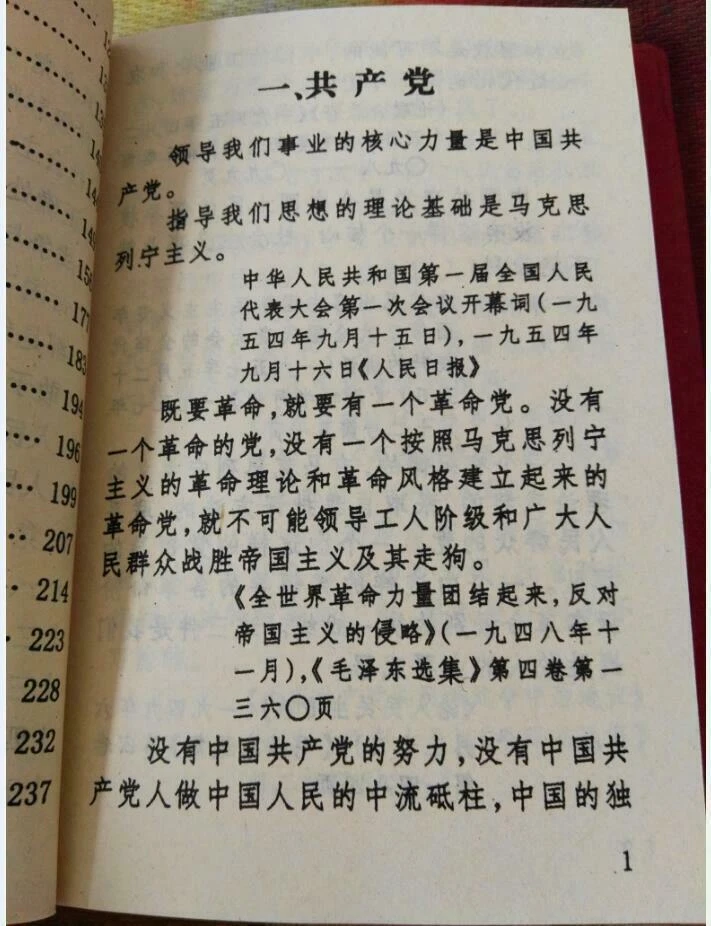 149
156
177
183
194
196
199
207
214
223
228
232
237
一、共产党
领导我们事业的核心力量是中国共
产党。
指导我们思想的理论基础是马克思
列宁主义。
中华人民共和国第一届全国人民
代表大会第一次会议开幕词(一九
五四年九月十五日),一九五四年
九月十六日《人民日报》
既要革命,就要有一个革命党。没有
一个革命的党,没有一个按照马克思列宁
主义的革命理论和革命风格建立起来的
革命党,就不可能领导工人阶级和广大人
民群众战胜帝国主义及其走狗。
《全世界革命力量团结起来,反对
帝国主义的侵略》(一九四八年十
一月),《毛泽东选集》第四卷第一
三六〇页
没有中国共产党的努力,没有中国共
产党人做中国人民的中流砥柱,中国的独
1